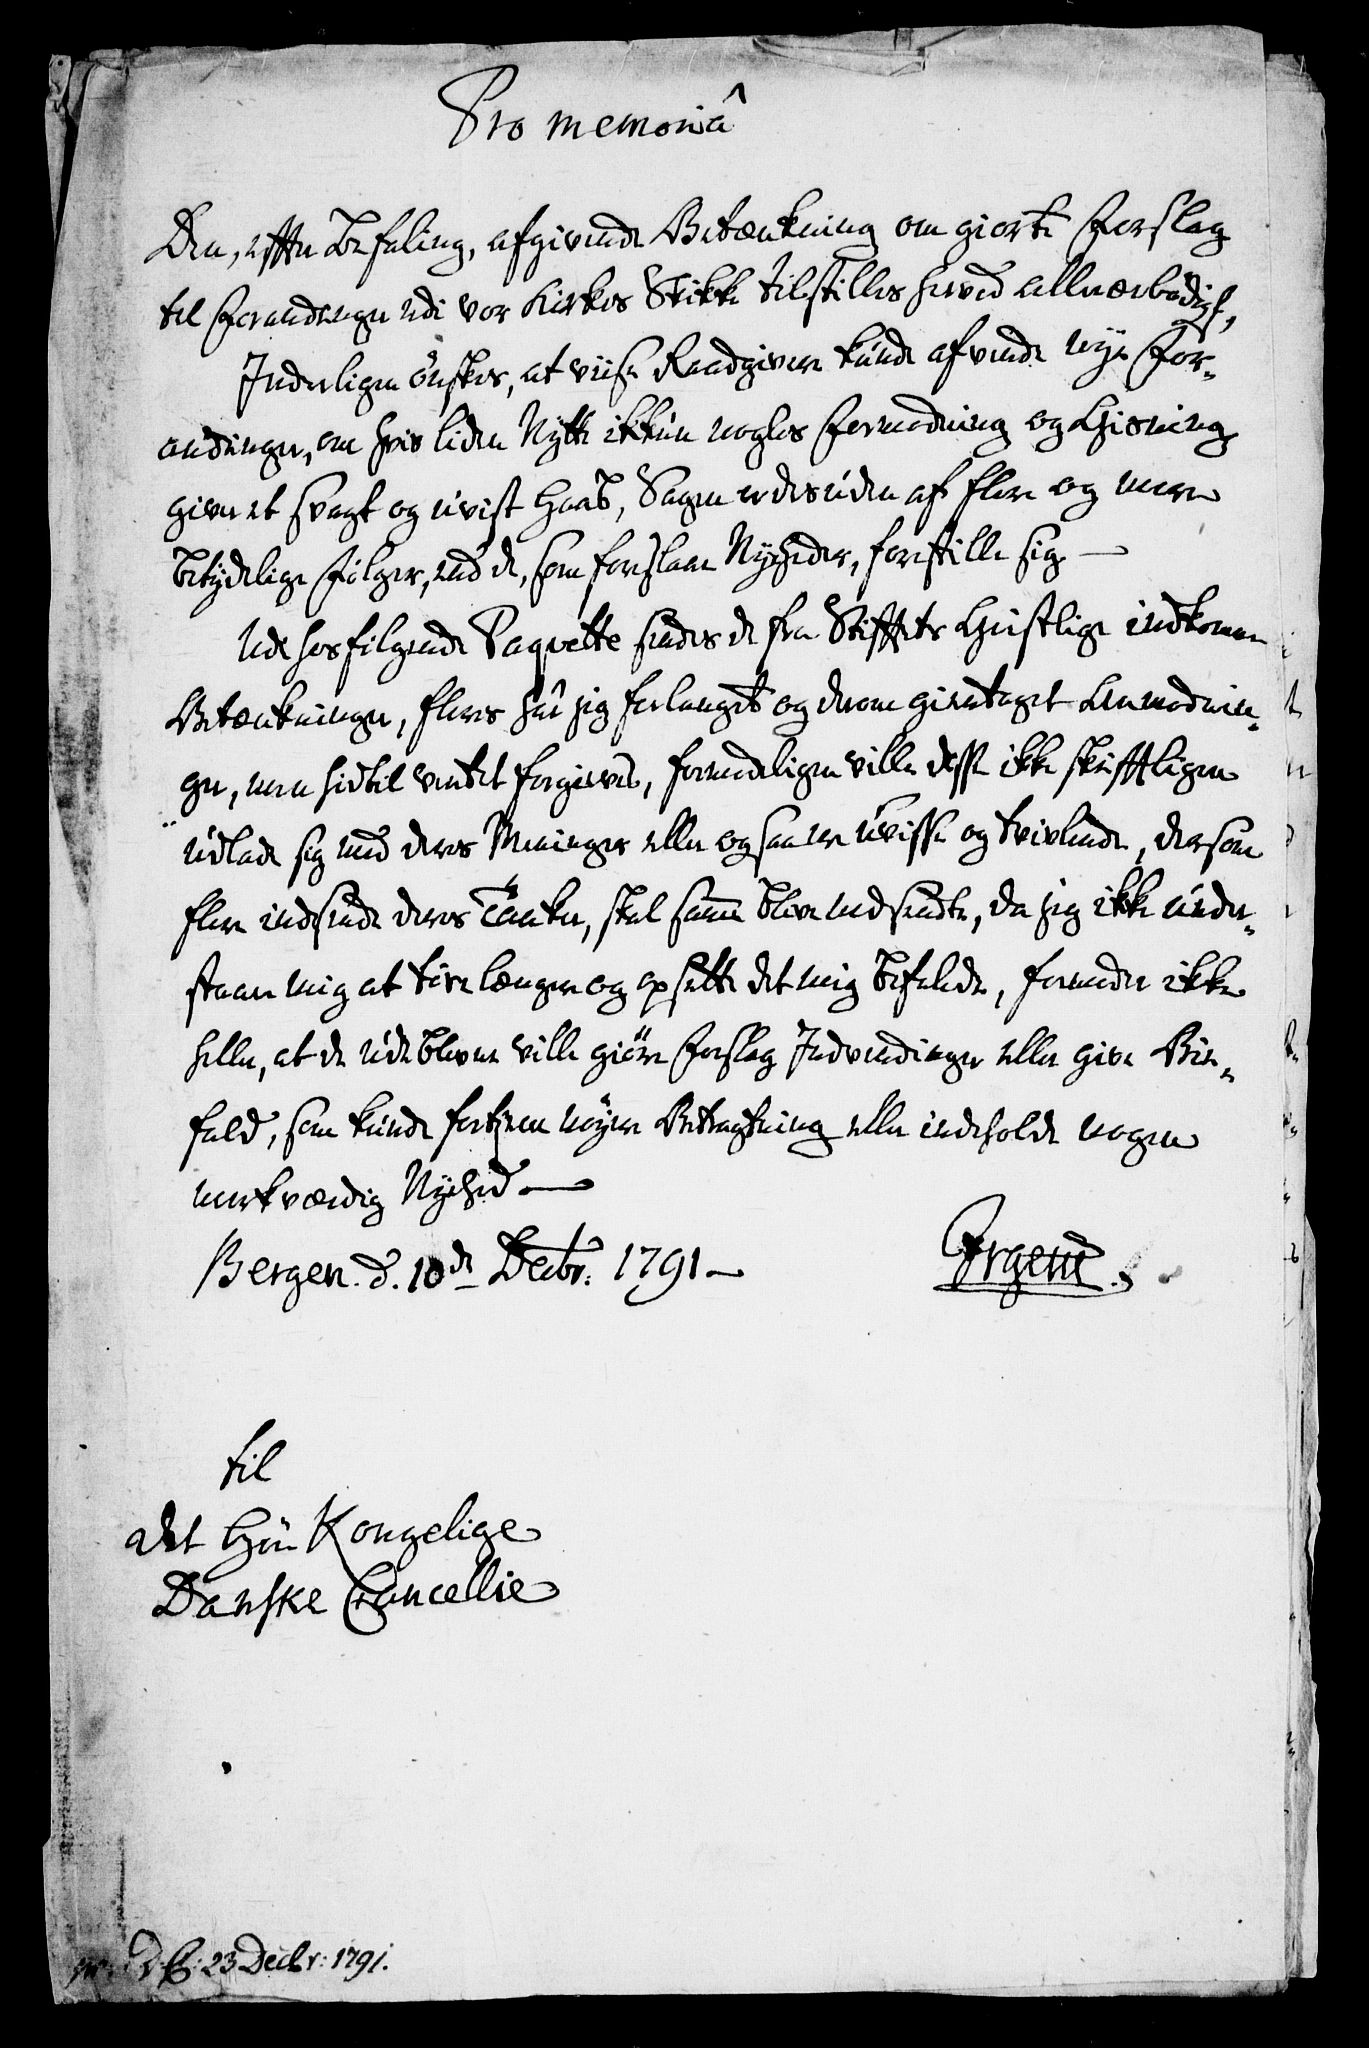 Pro memoriâ
Den, effter Befaling, afgivende Betænkning om giorte Forslag
til Forandringer udi vor Kirkes Skikke tilstilles herved allerærbødigst,
Inderligen önskes, at viise Raadgivere kunde afvende nye For-
andringer, om hvis liden Nytte ikkun nogles Formodning og Gisning
giver et svagt og uvist Haab, Sagen er desuden af flere og meere
betydelige Følger, end de, som foreslaae Nyheder, forestille sig —
Udi hosfølgende Paqvette sendes de fra Stifftets Geistlige indkomne
Betænkninger, fleres har jeg forlanget og derom gientaget Anmodnin-
ger, men hidtil ventet forgieves, formodeligen ville disse ikke skrifftligen
udlade sig med deres Meninger eller og saa ere uvisse og tvivlende, dersom
flere indsende deres Tanker, skal samme blive nedsendte, da jeg ikke under-
staaer mig at töve længer og opsette det mig befalede, formoder ikke
heller, at de udeblevne ville giöre Forslag Indvendinger eller give Bie-
fald, som kunde fortiene nöyere Betragtning eller indeholde nogen
merkværdig Nyehed —
Bergen. d. 10de Decbr: 1791 —
Irgens.
til
det Høi Kongelige
Danske Cancellie
D. C: 23 Decbr: 1791.